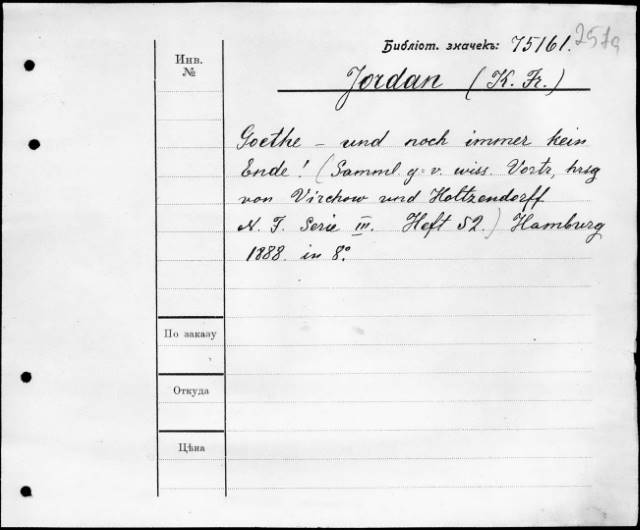 Библіот. значекъ: 75161.
Инв.
№
Jordan (K. Fr.)
Goethe – und noch immer kein
Ende! (Samml. g. v. wiss. Vortr., hrsg
von Virchow und Holtzendorff
N. F. Serie III. Heft 52.) Hamburg
1888. in 8°.
По заказу
Откуда
Цѣна